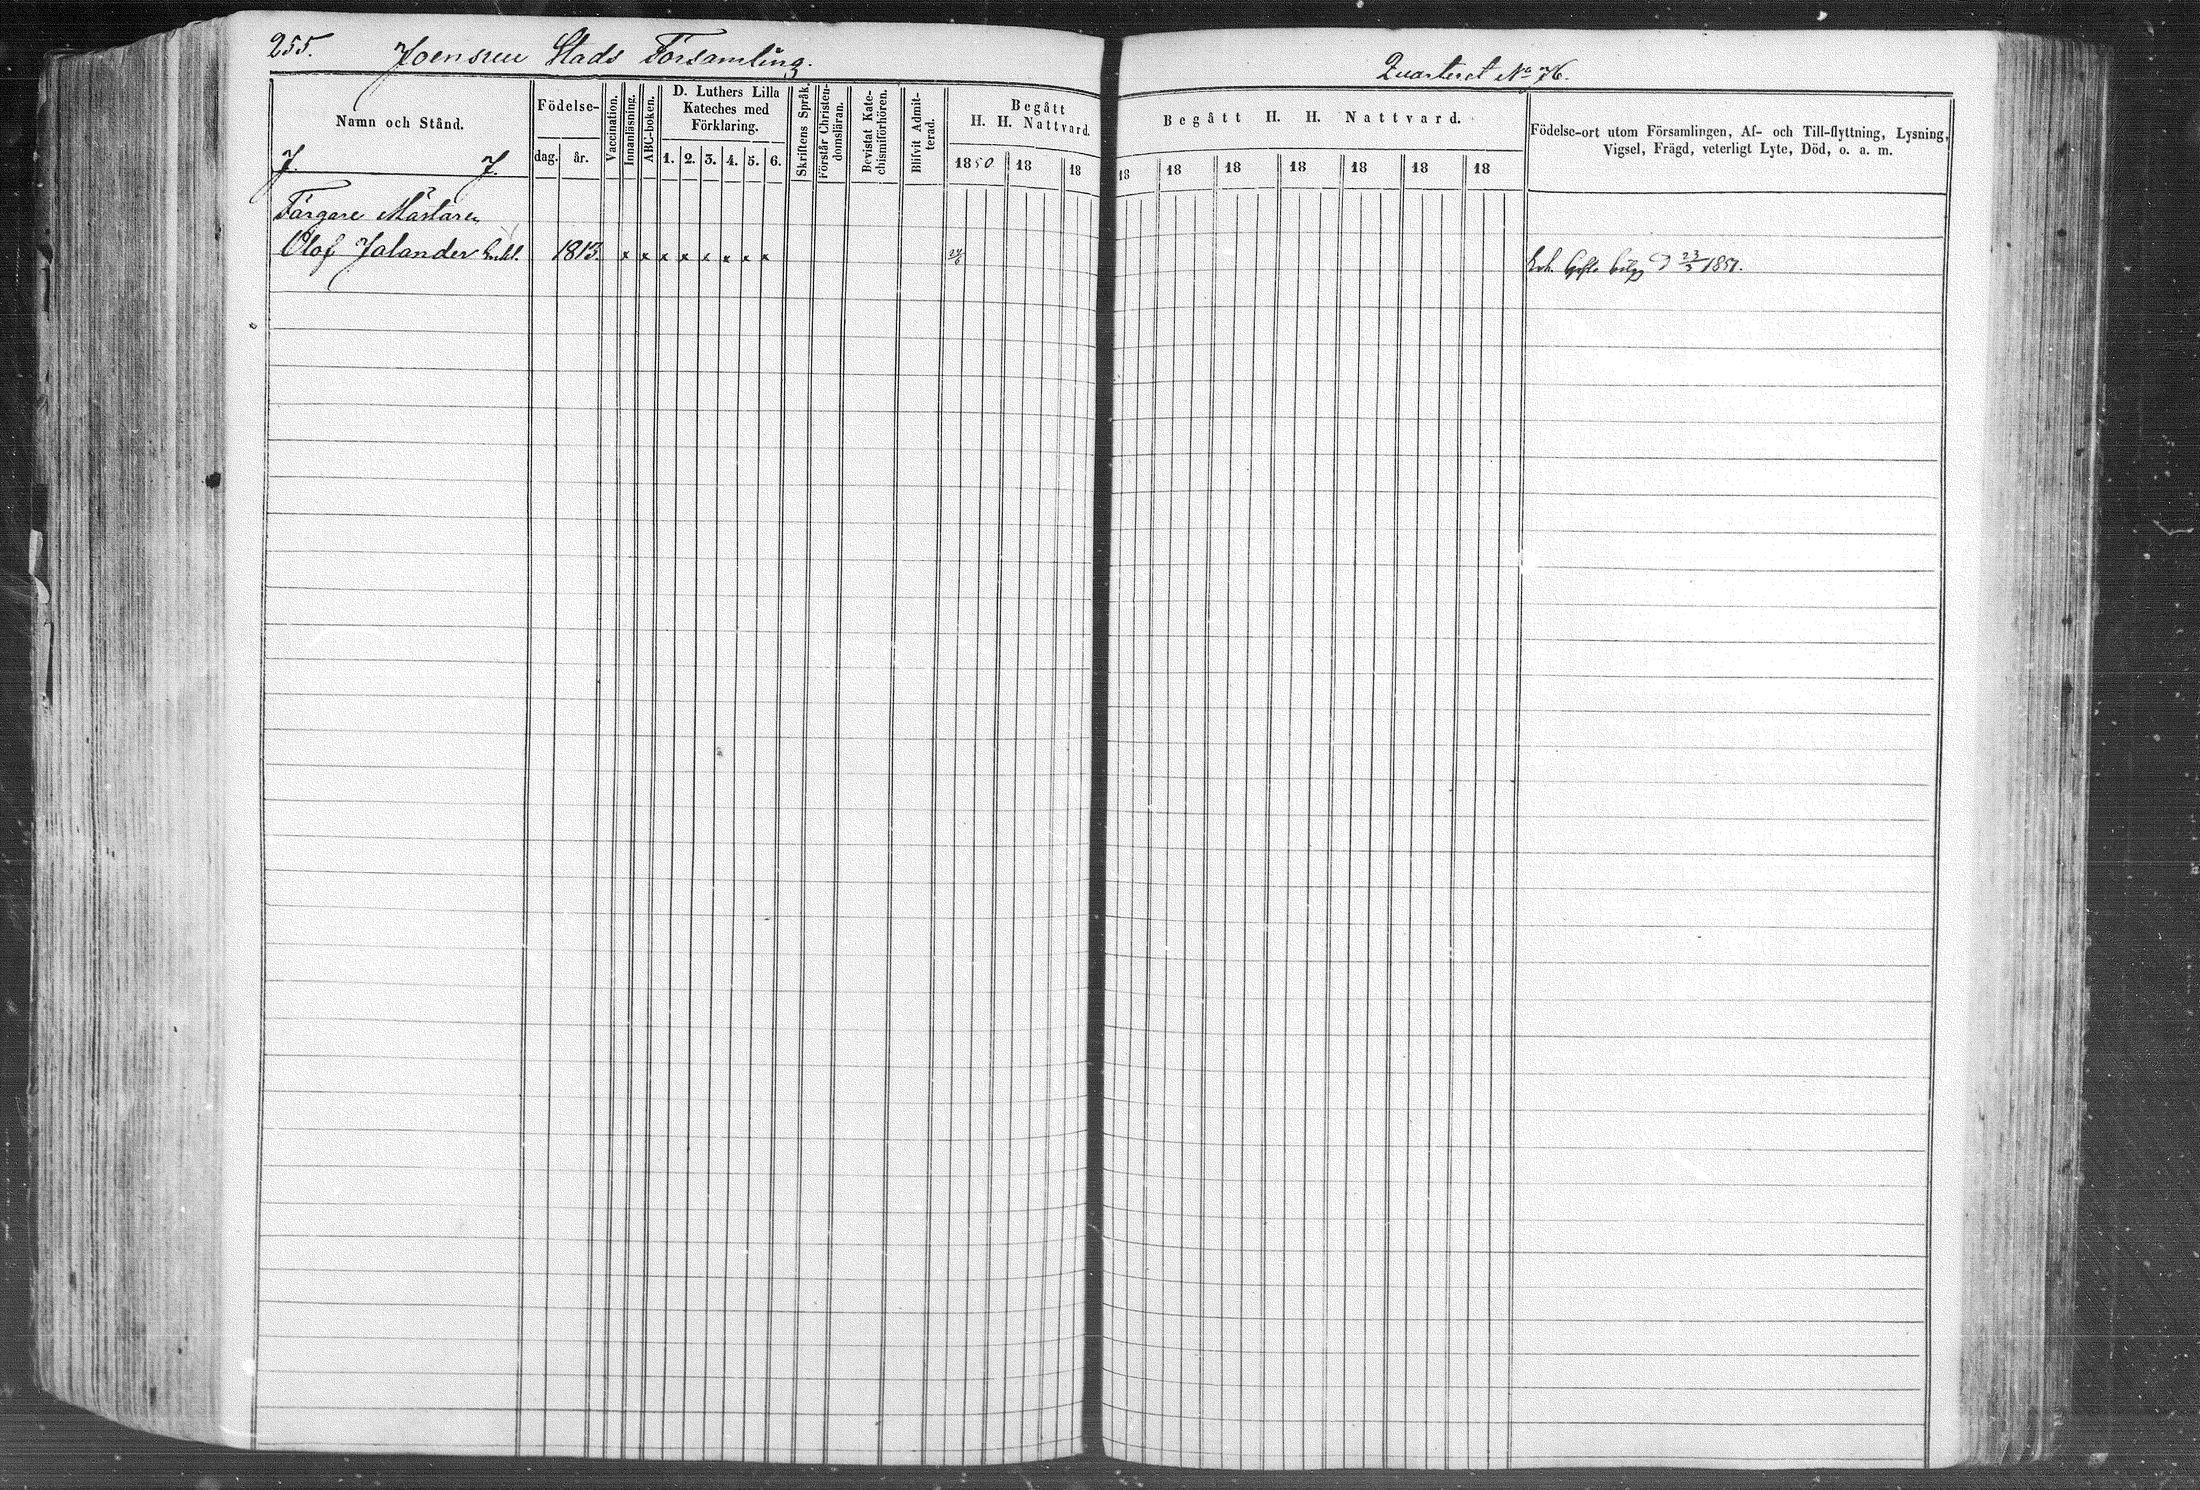 255. Joensuu Stads Församling.
Quarteret No 76.
Namn och Stånd.
J. J.
Födelse-
dag. år.
Vaccination.
Innanläsning.
ABC-boken.
D. Luthers Lilla
Kateches med
Förklaring.
1. 2. 3. 4. 5. 6.
Skriftens Språk.
Förstår Christen-
domsläran.
Bevistat Kate-
chismiförhören.
Blifvit Admit-
terad.
Begått
H. H. Nattvard.
1850 18 18
Begått H. H. Nattvard.
18 18 18 18 18 18 18
Födelse-ort utom Församlingen, Af- och Till-flyttning, Lysning,
Vigsel, Frägd, veterligt Lyte, Död, o. a. m.
Färgare Mästaren
Olof Jalander Enkl. 1813. x x x x x x x x
23/3 1851.